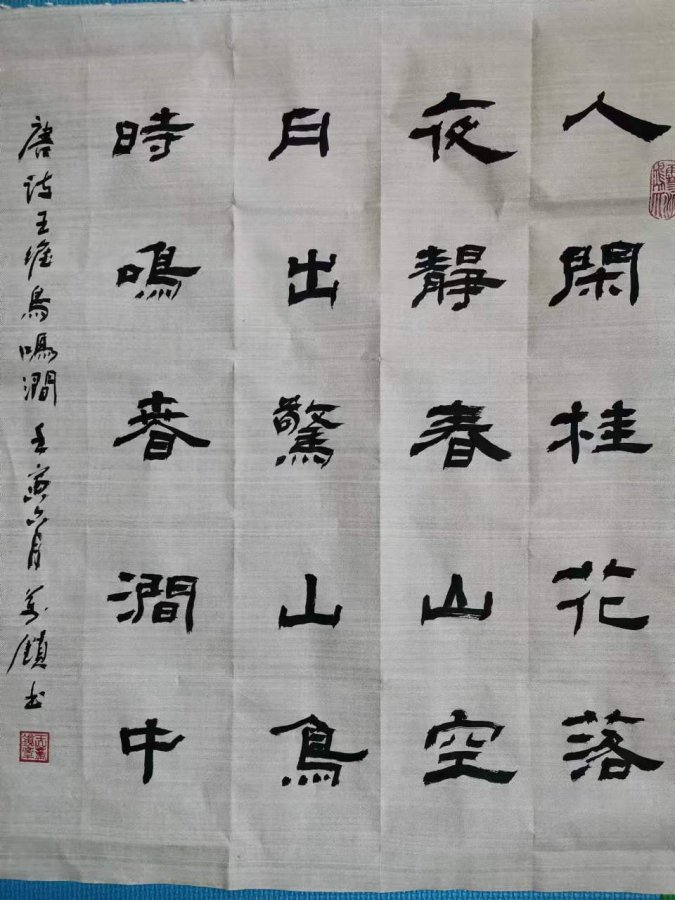 人閑桂花落
夜靜春山空
月出驚山鳥
時鳴春澗中
唐诗王維鳥鳴澗 壬寅六月 萬鎖书